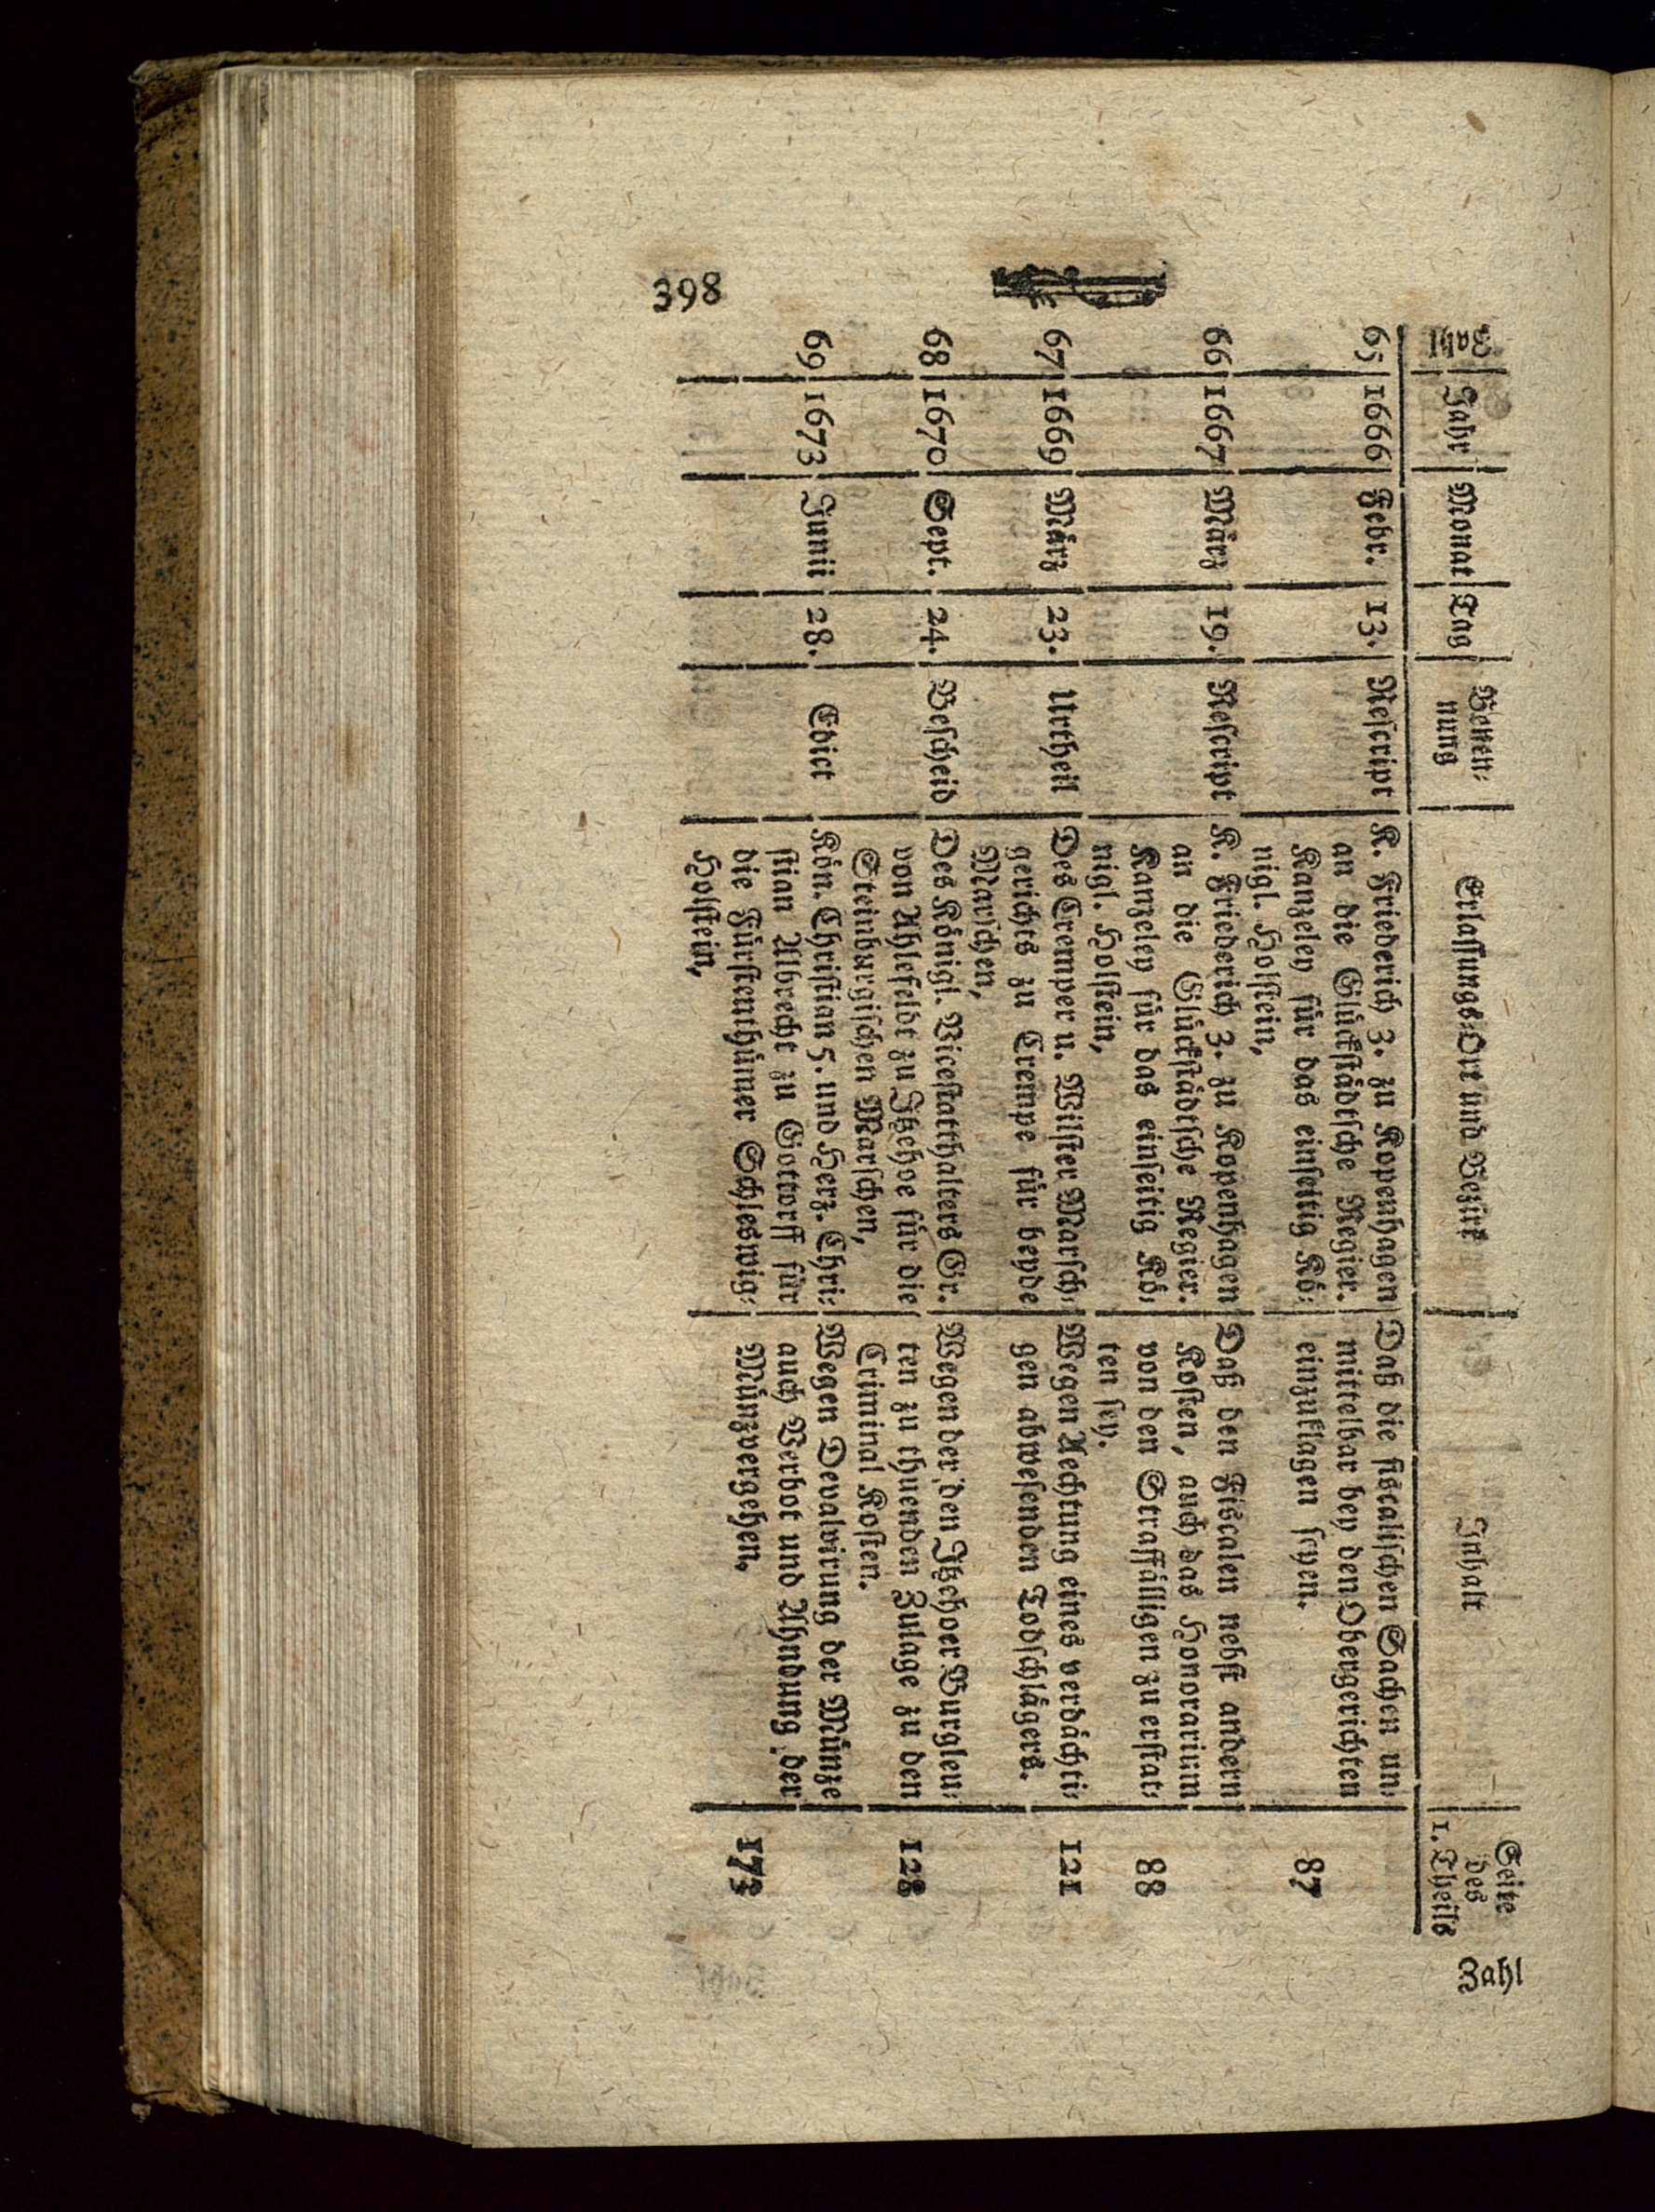 398
Zahl | Jahr | Monat | Tag | Benen-
nung | Erlassungs-Ort und Bezirk | Inhalt | Seite
des
1. Theils
65 | 1666 | Febr. | 13. | Rescript | K. Friederich 3. zu Kopenhagen | Daß die fiscalischen Sachen un-
an die Glückstädtsche Regier. | mittelbar bey den Obergerichten
Kanzeley für das einseitig Kö- | einzuklagen seyen. | 87
nigl. Holstein,
66 | 1667 | März | 19. | Rescript | K. Friederich 3. zu Kopenhagen | Daß den Fiscalen nebst andern
an die Glückstädtsche Regier. | Kosten, auch das Honorarium
Kanzeley für das einseitig Kö- | von den Straffälligen zu erstat- | 88
nigl. Holstein, | ten sey.
67 | 1669 | März | 23. | Urtheil | Des Cremper u. Wilster Marsch- | Wegen Aechtung eines verdächti- | 121
gerichts zu Crempe für beyde | gen abwesenden Todschlägers.
Marschen,
68 | 1670 | Sept. | 24. | Bescheid | Des Königl. Vicestatthalters Gr. | Wegen der den Itzehoer Burgleu-
von Ahlefeldt zu Itzehoe für die | ten zu thuenden Zulage zu den | 128
Steinburgischen Marschen, | Criminal Kosten.
69 | 1673 | Junii | 28. | Edict | Kön. Christian 5. und Herz. Chri- | Wegen Devalvirung der Münze
stian Albrecht zu Gottorff für | auch Verbot und Ahndung der
die Fürstenthümer Schleswig- | Münzvergehen. | 173
Holstein,
Zahl